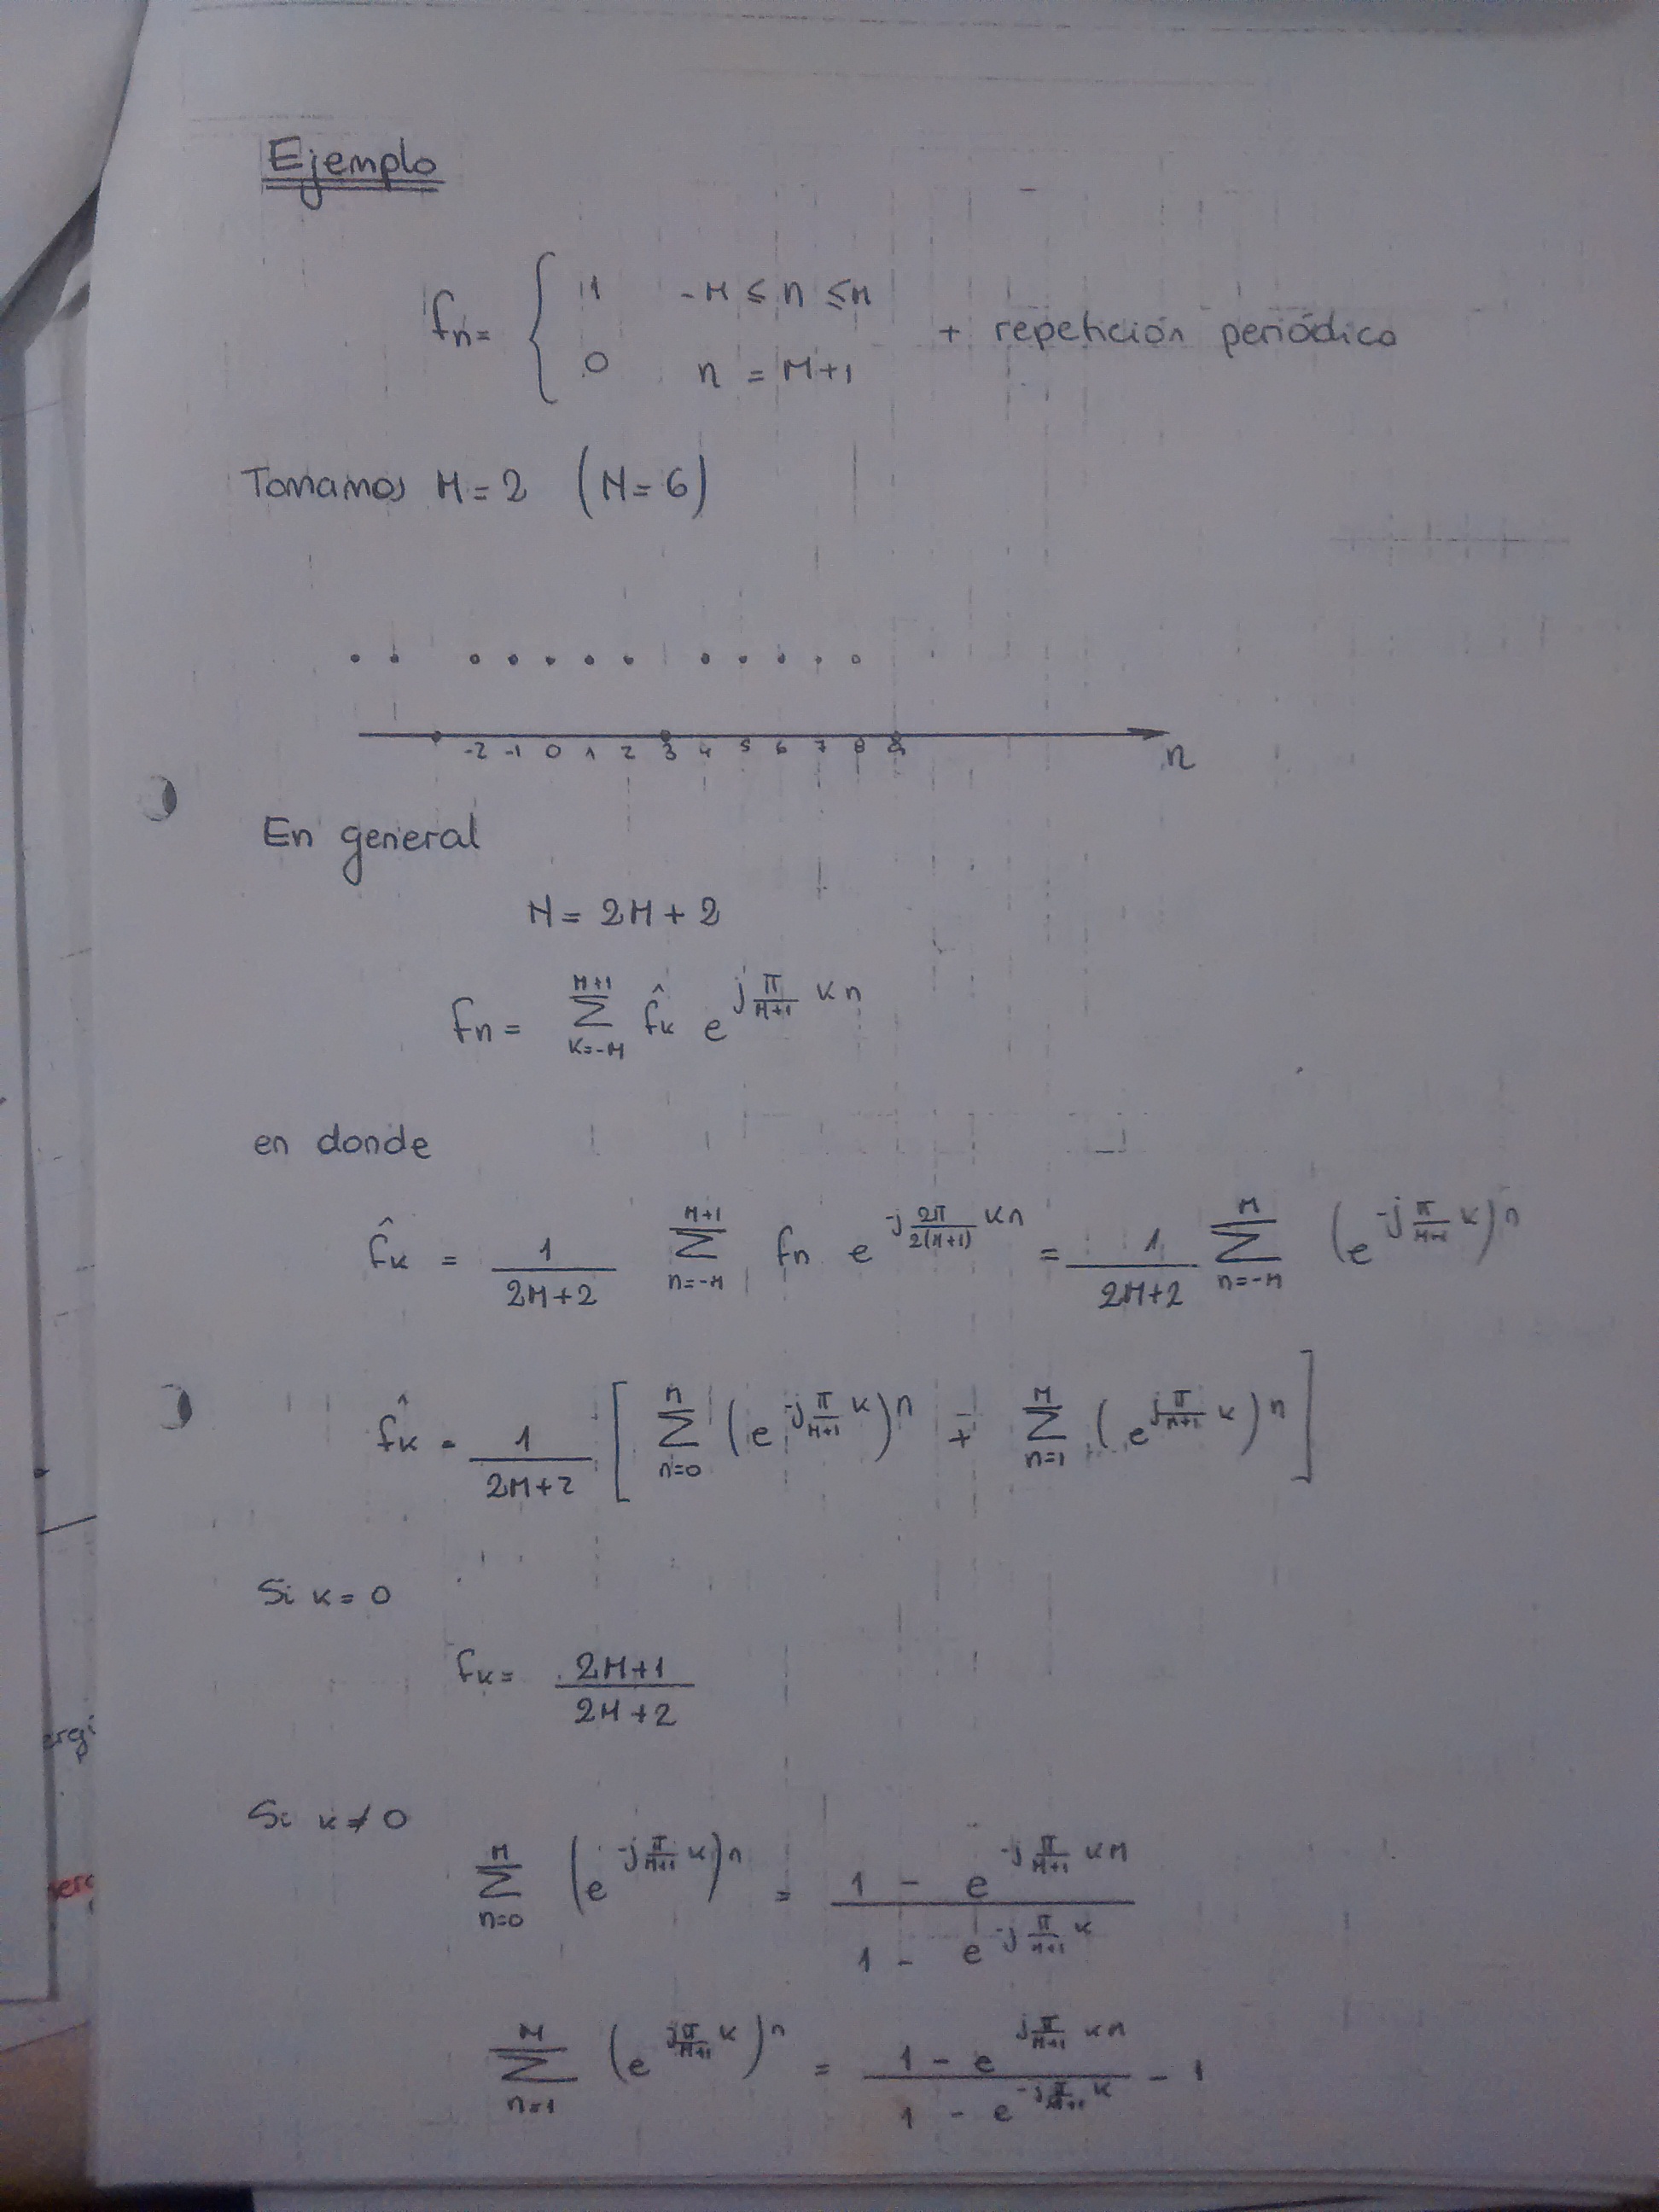 Ejemplo
fn = { 1 -M ≤ n ≤ M
0 n = M+1 + repetición periódica
Tomamos M = 2 (N = 6)
-2 -1 0 1 2 3 4 5 6 7 8 9 n
En general
N = 2M + 2
fn = Σ_{k=-M}^{M+1} f̂k e^{j π/(M+1) kn}
en donde
f̂k = 1/(2M+2) Σ_{n=-M}^{M+1} fn e^{-j 2π/(2(M+1)) kn} = 1/(2M+2) Σ_{n=-M}^{M} (e^{-j π/(M+1) k})^n
f̂k = 1/(2M+2) [ Σ_{n=0}^{M} (e^{-j π/(M+1) k})^n + Σ_{n=1}^{M} (e^{j π/(M+1) k})^n ]
Si k = 0
fk = (2M+1)/(2M+2)
Si k ≠ 0
Σ_{n=0}^{M} (e^{-j π/(M+1) k})^n = (1 - e^{-j π/(M+1) kM})/(1 - e^{-j π/(M+1) k})
Σ_{n=1}^{M} (e^{j π/(M+1) k})^n = (1 - e^{j π/(M+1) kM})/(1 - e^{-j π/(M+1) k}) - 1